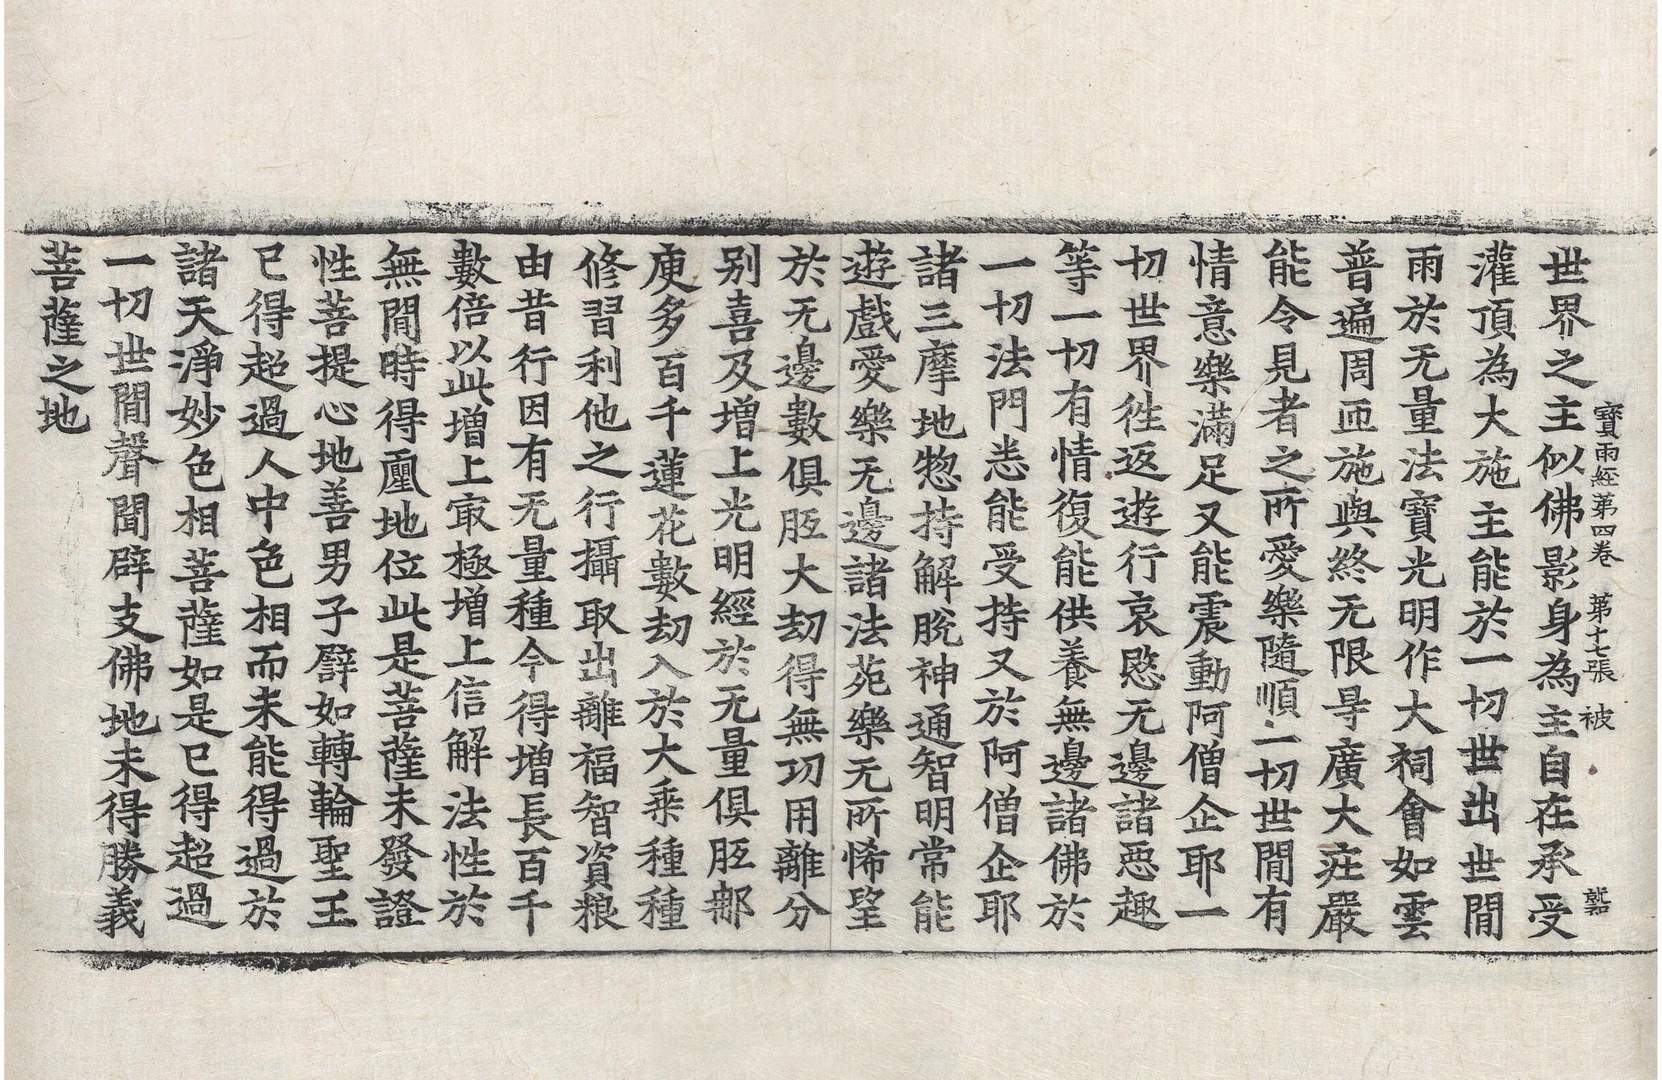 寶雨經第四卷 第十七張 被
世界之主似佛影身為主自在承受
灌頂為大施主能於一切世出世間
雨於无量法寶光明作大祠會如雲
普遍周帀施與終无限㝵廣大莊嚴
能令見者之所愛樂隨順一切世間有
情意樂滿足又能震動阿僧企耶一
切世界徃返遊行哀愍无邊諸惡趣
等一切有情復能供養無邊諸佛於
一切法門悉能受持又於阿僧企耶
諸三摩地惣持解脫神通智明常能
遊戲愛樂无邊諸法苑樂无所悕望
於无邊數俱胝大劫得無功用離分
别喜及増上光明經於无量俱胝那
庾多百千蓮花數劫入於大乘種種
修習利他之行攝取出離福智資粮
由昔行因有无量種今得增長百千
數倍以此増上㝡極增上信解法性於
無間時得㕓地位此是菩薩未發證
性菩提心地善男子譬如轉輪聖王
已得超過人中色相而未能得過於
諸天淨妙色相菩薩如是已得超過
一切世間聲聞辟支佛地未得勝義
菩薩之地